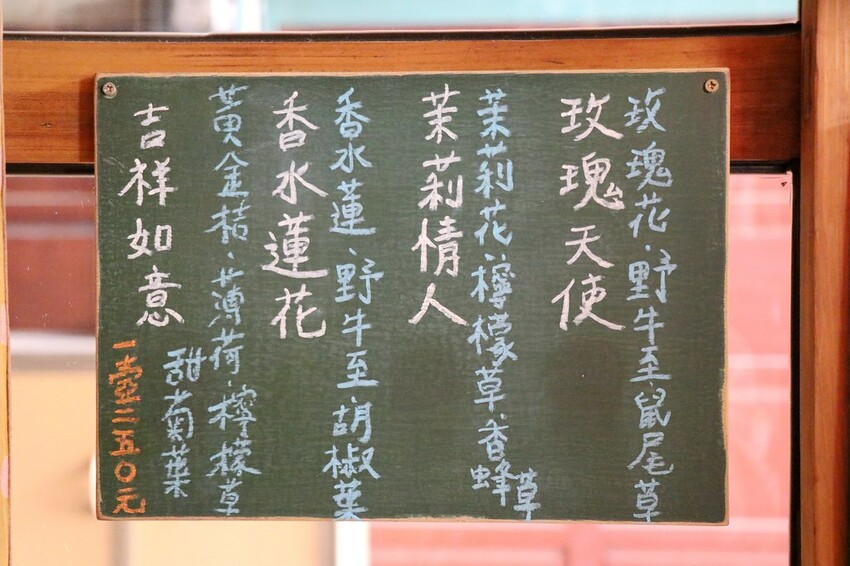 玫瑰花、野牛至、鼠尾草
玫瑰天使
茉莉花、檸檬草、香蜂草
茉莉情人
香水蓮、野牛至、胡椒葉
香水蓮花
黃金桔、薄荷、檸檬草
甜菊葉
吉祥如意
一壺二五０元